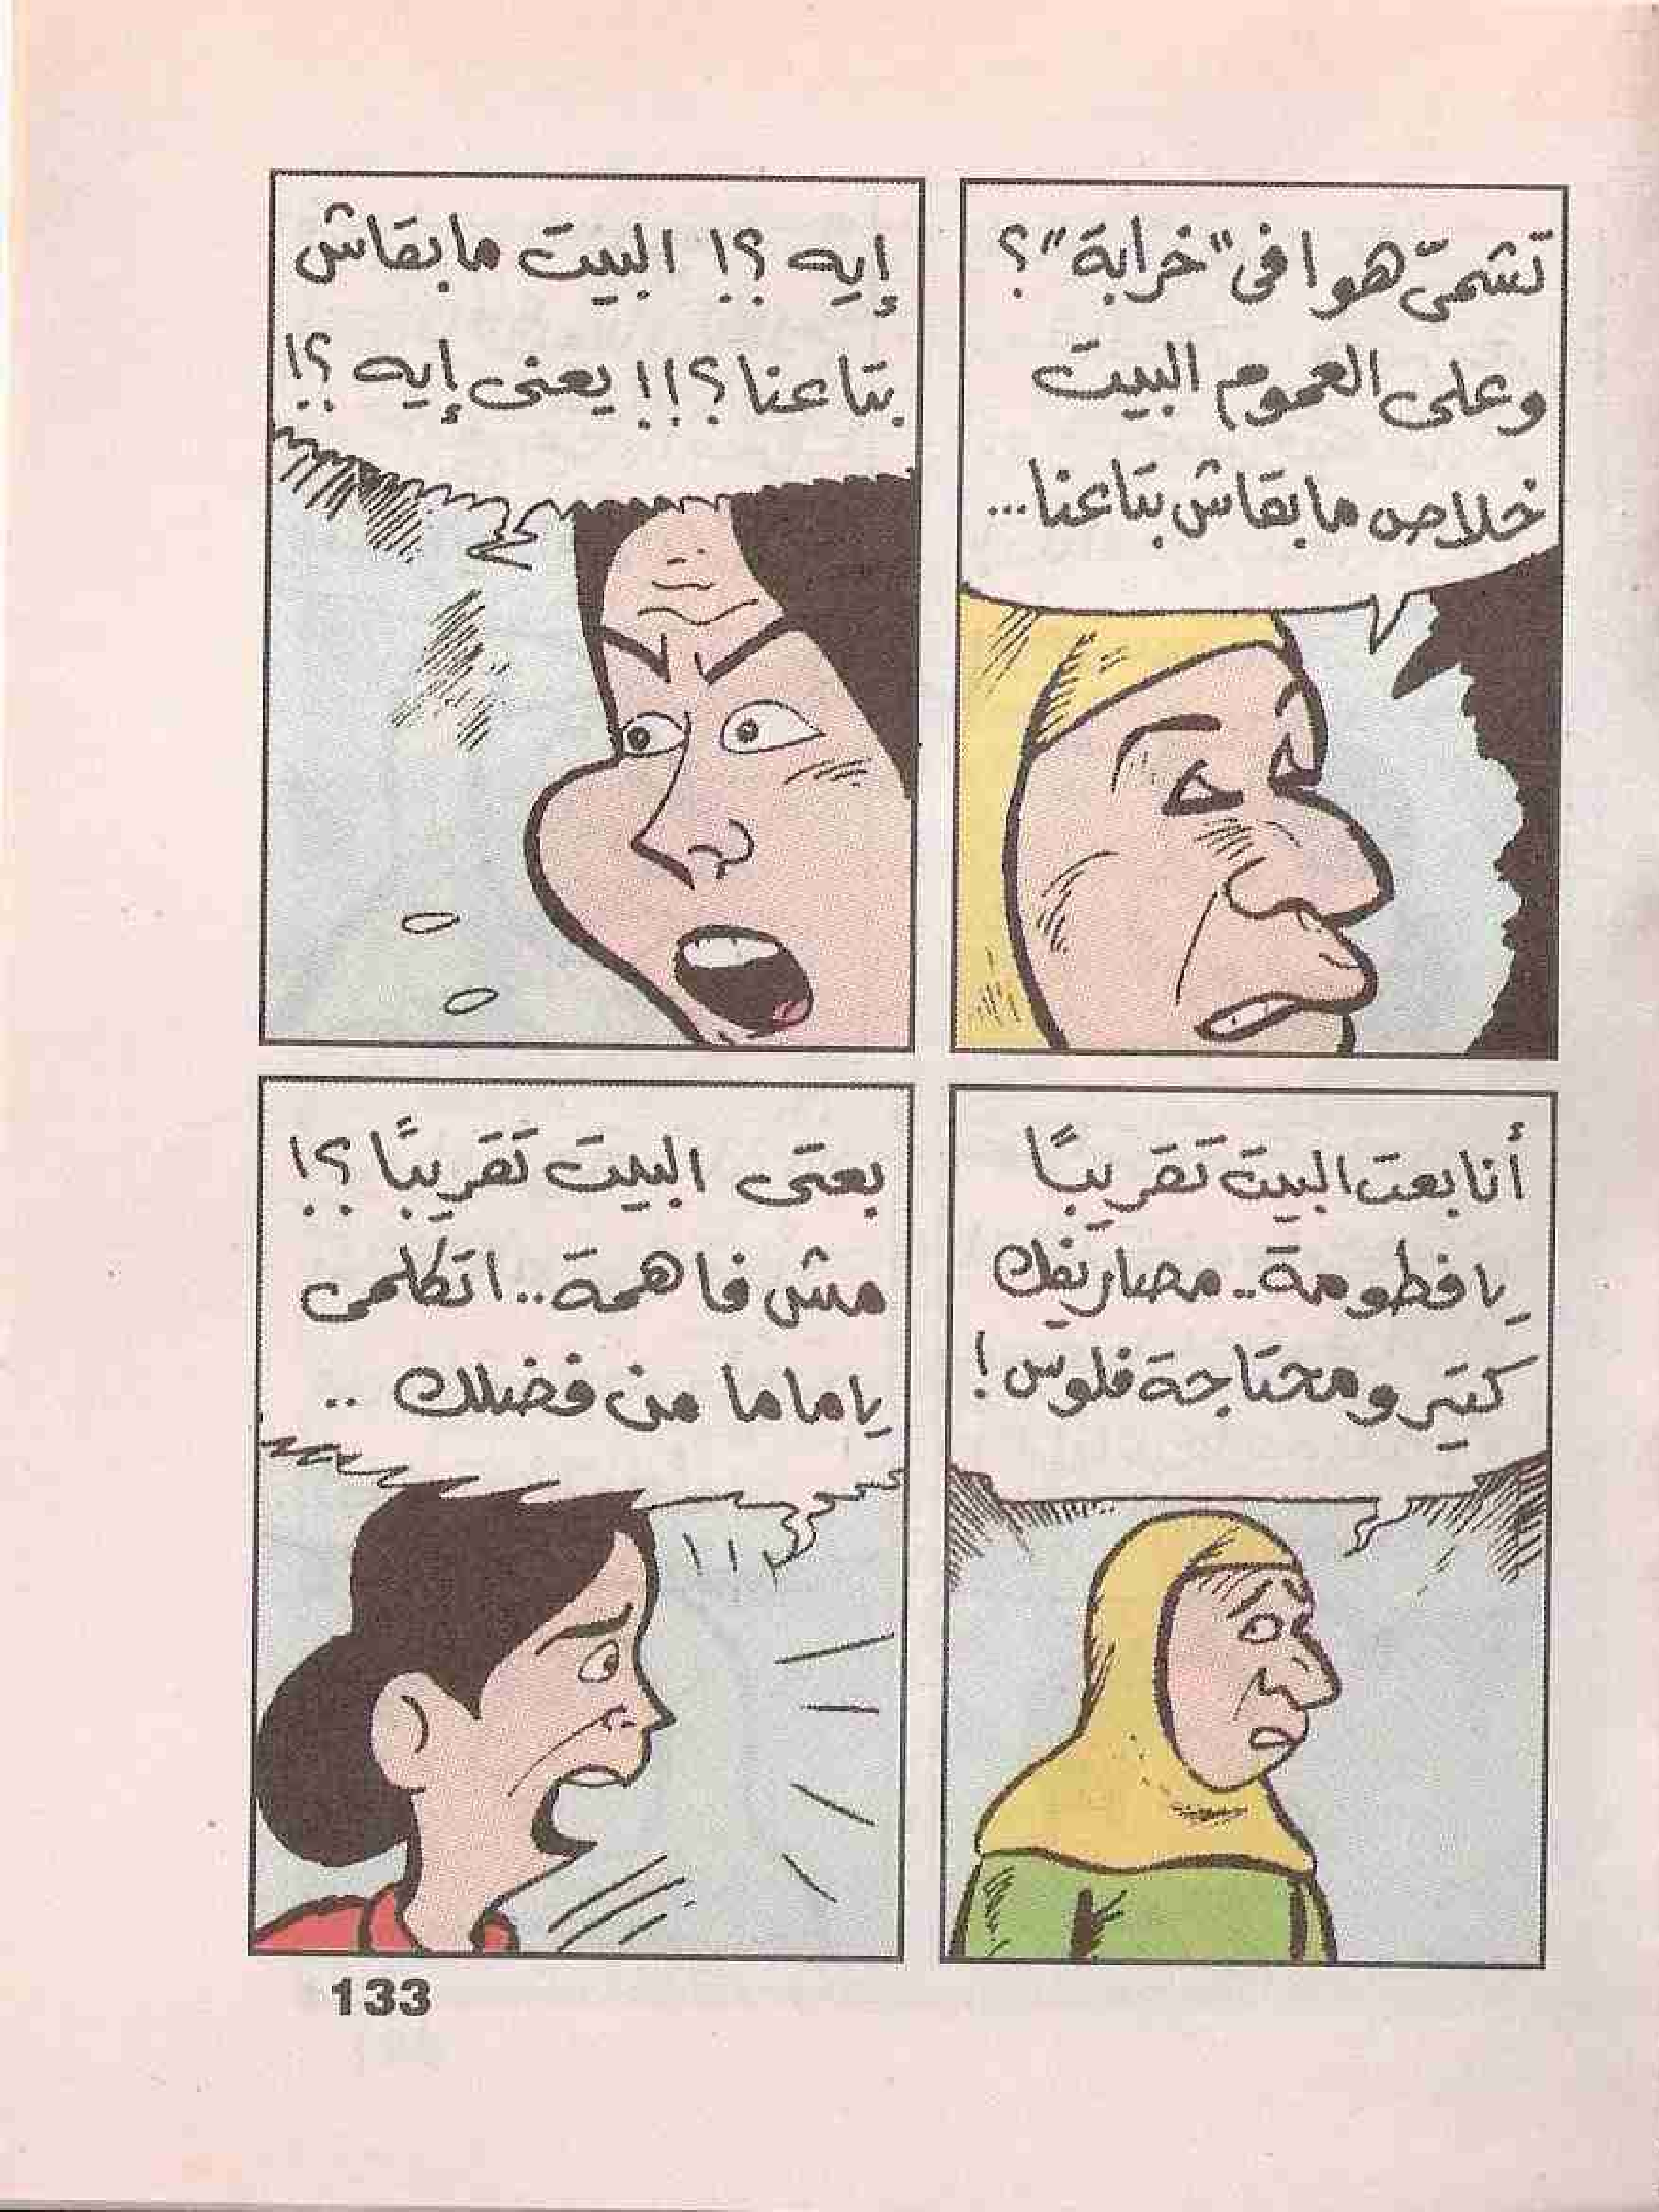 تشمىّ هوا فى "خرابة"؟
وعلى العموم البيت
خلاص مابقاش بتاعنا...
إيه ؟! البيت مابقاش
بتاعنا ؟!! يعنى إيه ؟!
أنا بعت البيت تقريبًا
يا فطومة.. مصاريفك
كتير ومحتاجة فلوس!
بعتى البيت تقريبًا ؟!
مش فاهمة.. اتكلمى
ياماما من فضلك ..
133